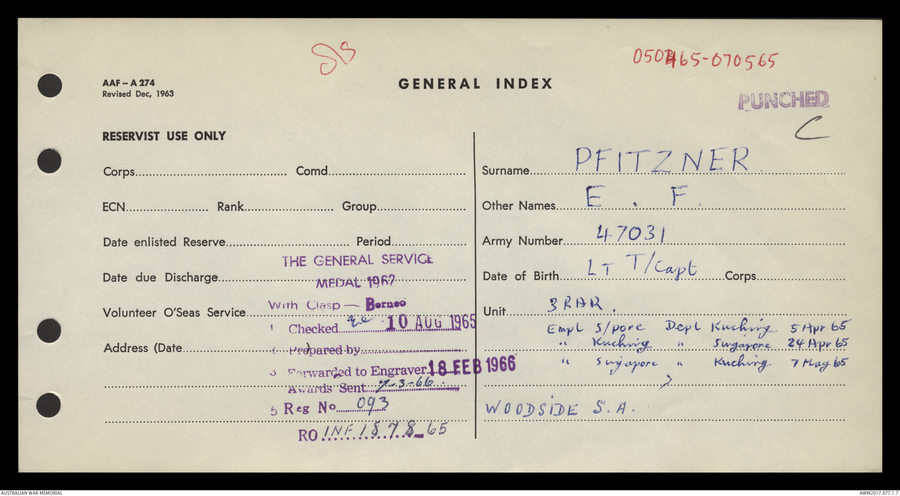 AAF – A 274
Revised Dec, 1963
GENERAL INDEX
PUNCHED
C
RESERVIST USE ONLY
Corps Comd
ECN Rank Group
Date enlisted Reserve Period
Date due Discharge
Volunteer O'Seas Service
Address (Date )
THE GENERAL SERVICE
MEDAL 1962
With Clasp — Borneo
1 Checked 10 AUG 1965
Prepared by
3 Forwarded to Engraver 18 FEB 1966
Awards Sent 7-3-66
5 Reg No 093
RO INF 1878-65
Surname PFITZNER
Other Names E. F.
Army Number 47031
Date of Birth LT T/Capt Corps
Unit 3 RAR.
Empl S/pore Depl Kuching 5 Apr 65
" Kuching " Singapore 24 Apr 65
" Singapore " Kuching 7 May 65
WOODSIDE S.A.
AUSTRALIAN WAR MEMORIAL
AWM2017.877.1.7